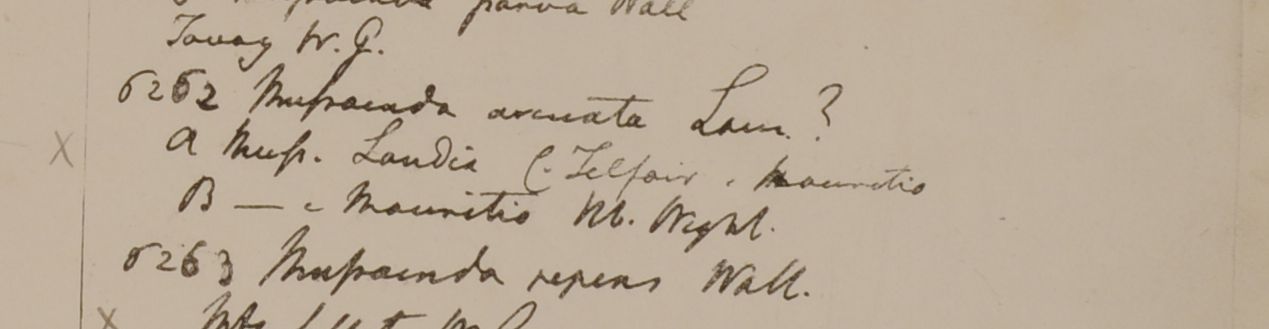 Mussaenda parva Wall
Tavoy W. G.
6262 Mussaenda arcuata Lam. ?
A Muss. Landia C. Telfair e Mauritio
B — e Mauritio hb. Wight.
6263 Mussaenda repens Wall.